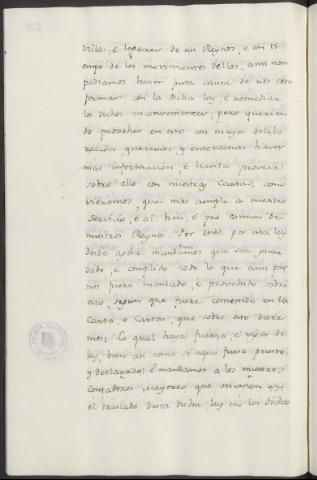 villas, é logares de sus Reynos, é en ti-
empo de los movimientos dellos, aun non
podiamos haver justa causa de nos con
formar con la dicha ley, é remediar
los dichos inconvenientes; pero querien
do proveher en esto con mayor delibe
racion queremos, y entendemos haver
mas informacion, é havida proveer
sobre ello con nuestras Cartas, como
vieremos, que mas cumple á nuestro
servicio, é al bien, é pró comun de
nuestros Reynos. Por ende por esta ley
desde agora mandamos que sea guar
dado, é complido todo lo que assi por
nos fuere mandado, é proveido sobre
esto, segun que fuere contenido en la
Carta ó Cartas, que sobre esto diere
mos: Lo qual haya fuerza, é vigor de
ley, bien asi como si aqui fuese puesto,
y declarado: é mandamos a los nuestros
Contadores mayores que asienten
el traslado desta dicha ley en los dichos